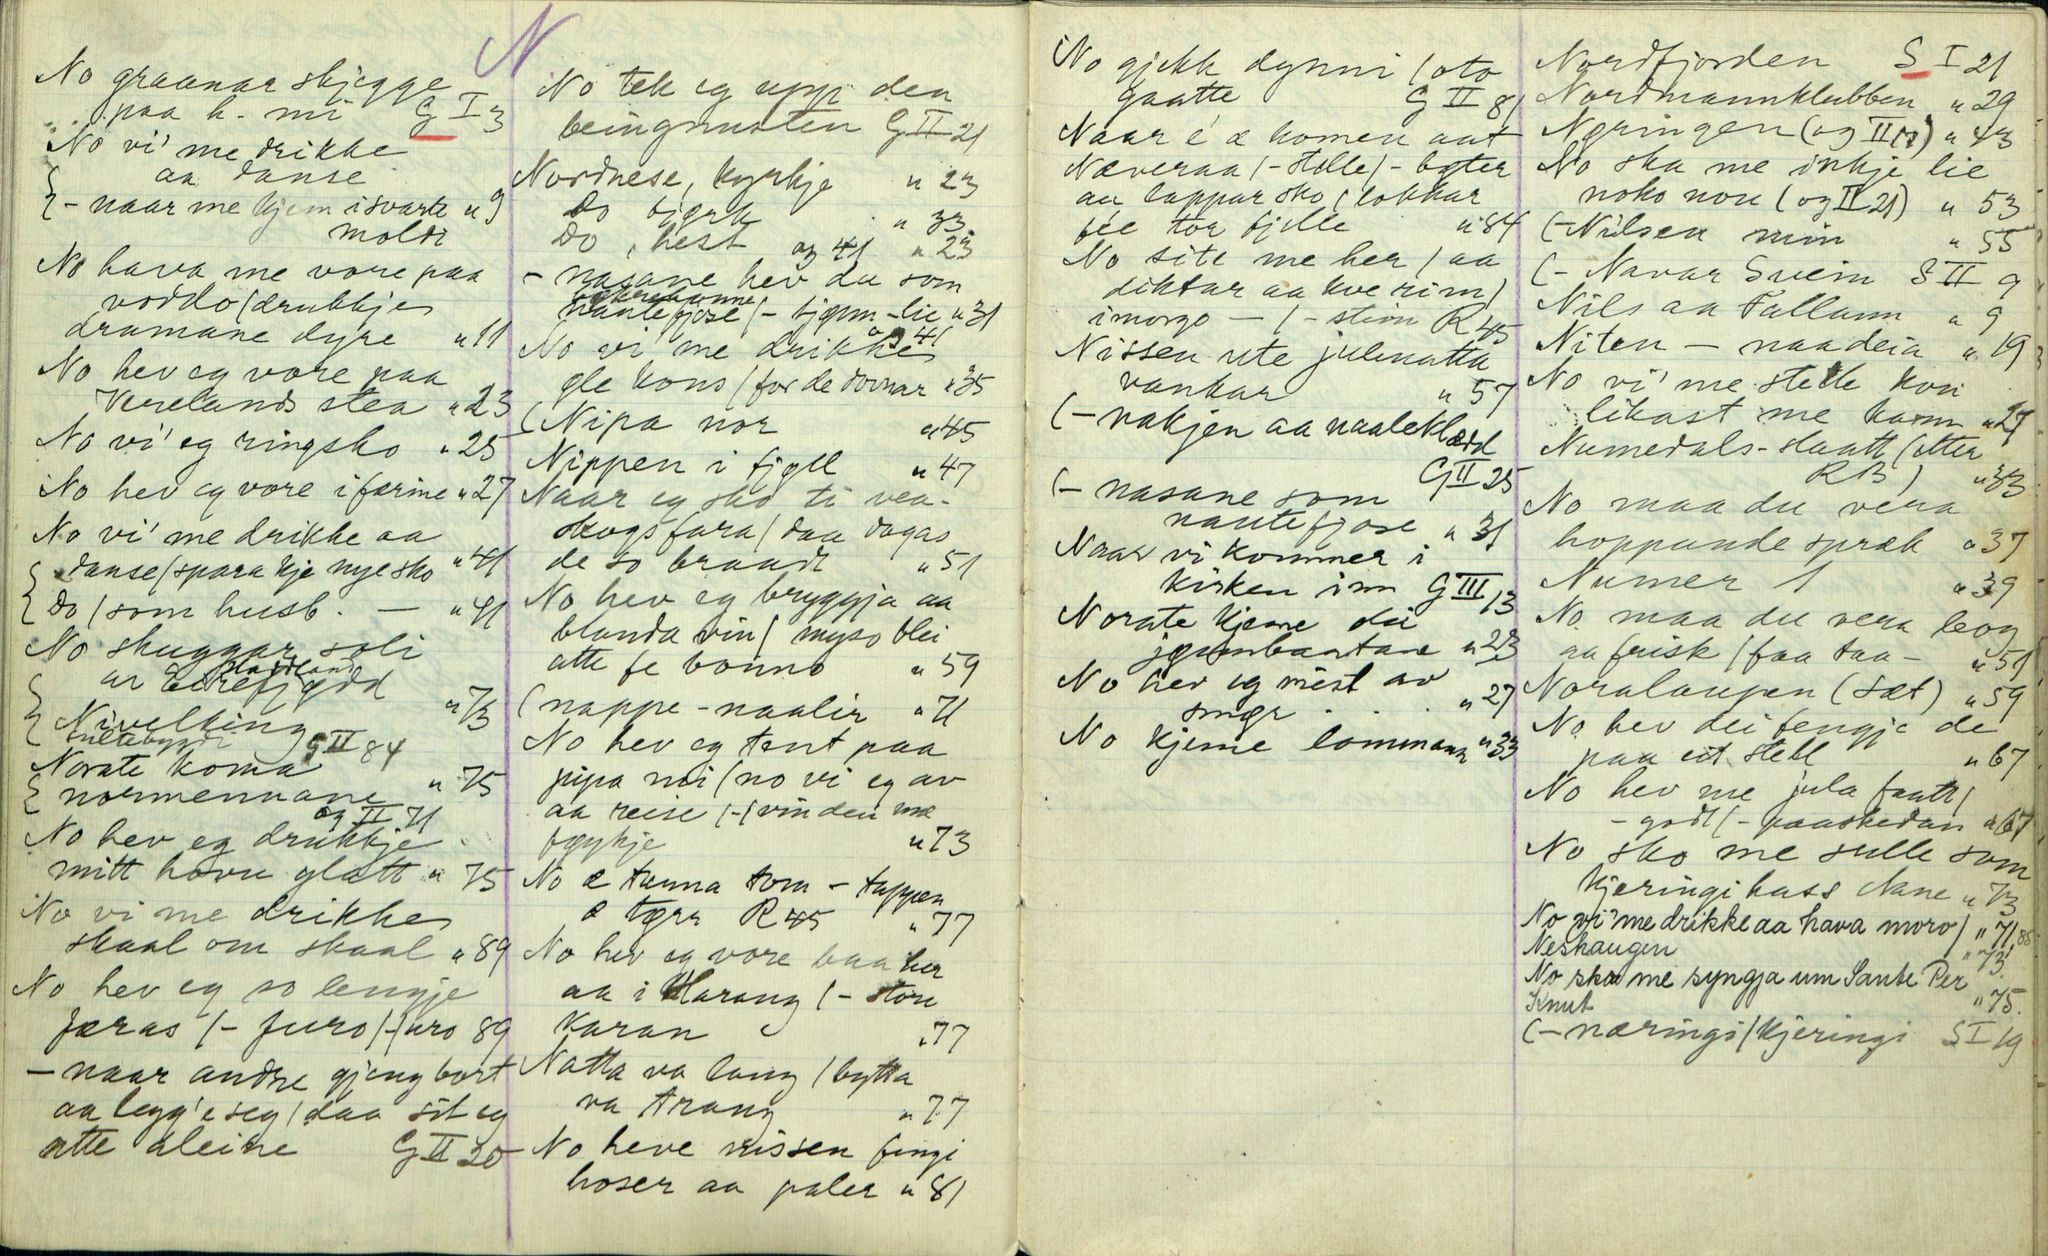 N
No graanar skjegge
paa h. mi G I 3
No vi' me drikke
aa danse
{ - naar me kjem i svarte " 9
moldi
No hava me vore paa
voddo / drukkje
dramane dyre " 11
No hev eg vore paa
Vrelands stea " 23
No vi' eg ringsko " 25
No hev eg vore i færine " 27
No vi' me drikke aa
danse / spara kje nye sko " 41
{ Do / som husb. — " 41
No skuggar soli
ur
" 73
{ Nivelking
G II 84
Norate koma
{ normennane " 75
og II 71
No hev eg drukkje
mitt havu glatt " 75
No vi me drikke
skaal om skaal " 89
No hev eg so lengje
færas / - furo / - uro 89
- naar andre gjeng bort
aa legg'e seg / daa sit eg
atte aleine G II 20
No tek eg upp den
beingnusten G II 21
Nordnese, kyrkje " 23
Do bjørk " 33
Do, hest og 41 " 23
- nasane hev du som
nautefjose / - bjønn - lie " 31
og 41
No vi me drikke
gle kons / for de dovnar " 35
( Nipa nor " 45
Nippen i fjell " 47
Naar eg sko ti vea-
skogs fara / daa dagas
de so braadt " 51
No hev eg bryggja aa
blanda vin / myso blei
atte fe bonno " 59
( nappe - naalir " 71
No hev eg tent paa
pipa mi / no vi eg av
aa reise / - / vinden me
føykje " 73
No æ tunna tom - tappen
æ tørr R 45 " 77
No hev eg vore baa her
aa i Harang / - store
karan " 77
Natta va lang / bytta
va trang " 77
No heve nissen fingi
hoser aa paler " 81
No gjekk dynni / oto
gaatte G II 81
Naar é æ komen aat
Næveraa / - stelle / - bøter
aa lappar sko / lokkar
fée tor fjelle " 84
No site me her / aa
diktar aa kve rim /
imorgo — / - stion R 45
Nissen ute julenatta
vankar " 57
( - nakjen aa naaleklædd
G II 25
( - nasane som
nautefjose " 31
Naar vi kommer i
kirken inn G III 13
Norate kjeme dei
jønnbautane " 23
No hev eg mist av
smør . . . " 27
No kjeme lommann " 33
Nordfjorden S I 21
Nordmannklubben " 29
Nøringen (og II 17) " 43
No ska me inkje lie
noko non (og II 21) " 53
( - Nilsen min " 55
( - Navar Svein S II 9
Nils aa Tallann " 9
Niten - naadeia " 19
No vi' me stelle kon
likast me kann " 27
Numedals-slaatt (etter
R B) " 33
No maa du vera
hoppande spræk " 37
Numer 1 " 39
No maa du vera leog
aa frisk / faa taa - " 51
Noralaupen (sæt) " 59
No hev dei fengje de
paa eit stell " 67
No hev me jula fatt /
- godt / - paaskedan " 67
No sko me sulle som
kjeringi hass Nane " 73
No vi' me drikke aa hava moro / " 71, 88
Neshaugen " 73
No ska me syngja um Sante Per
Knut " 75.
( - nærings / kjeringi S I 19